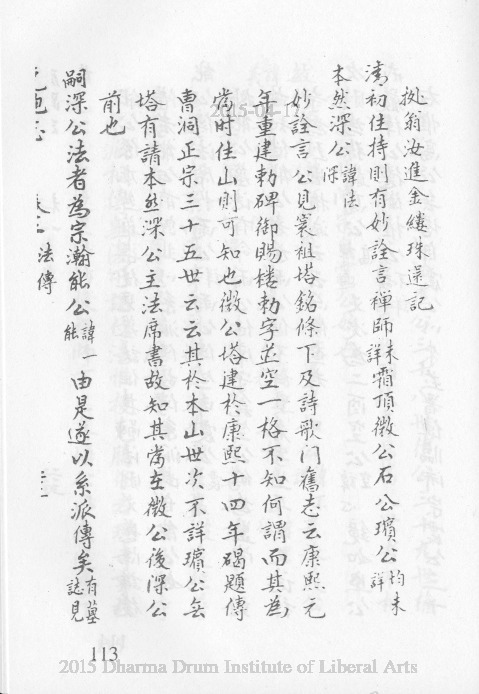 挑翁汝進金縷珠還記
清初住持則有妙詮言禪師未詳霜頂徵公石公璸公均未詳
本然深公諱法深
妙詮言公見寰祖塔銘條下及詩歌门舊志云康熙元
年重建勅碑御賜楼勅字並空一格不知何謂而其為
當时住山則可知也徵公塔建於康熙十四年碣題傳
曹洞正宗三十五世云云其於本山世次不詳璸公無
塔有請本然深公主法席書故知其當在徵公後深公
前也
嗣深公法者為宗瀚能公諱一能由是遂以系派傳矣有墓誌見
法傳
113
2015-04-17
2015 Dharma Drum Institute of Liberal Arts